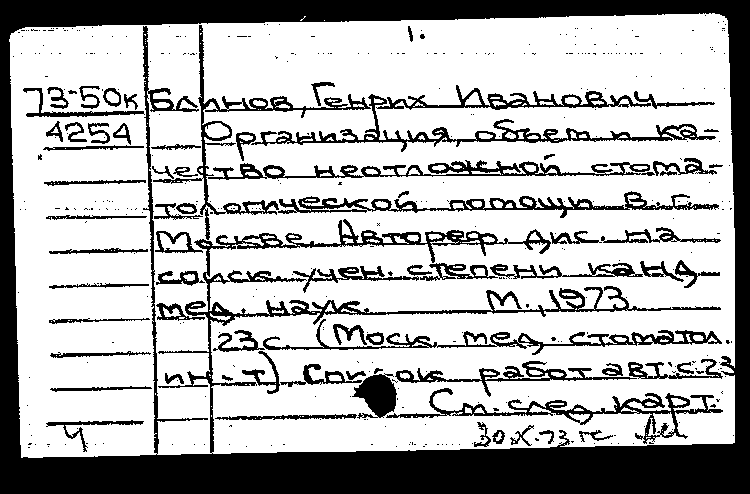 1.
73-50к Блинов, Генрих Иванович
4254 Организация, объем и ка-
чество неотложной стома-
тологической помощи в г.
Москве. Автореф. дис. на
соиск. учен. степени канд.
мед. наук. М., 1973.
23 с. (Моск. мед. стоматол.
ин-т). Список работ авт.: с. 23
См. след. карт.
Ч 30.X.73 гс